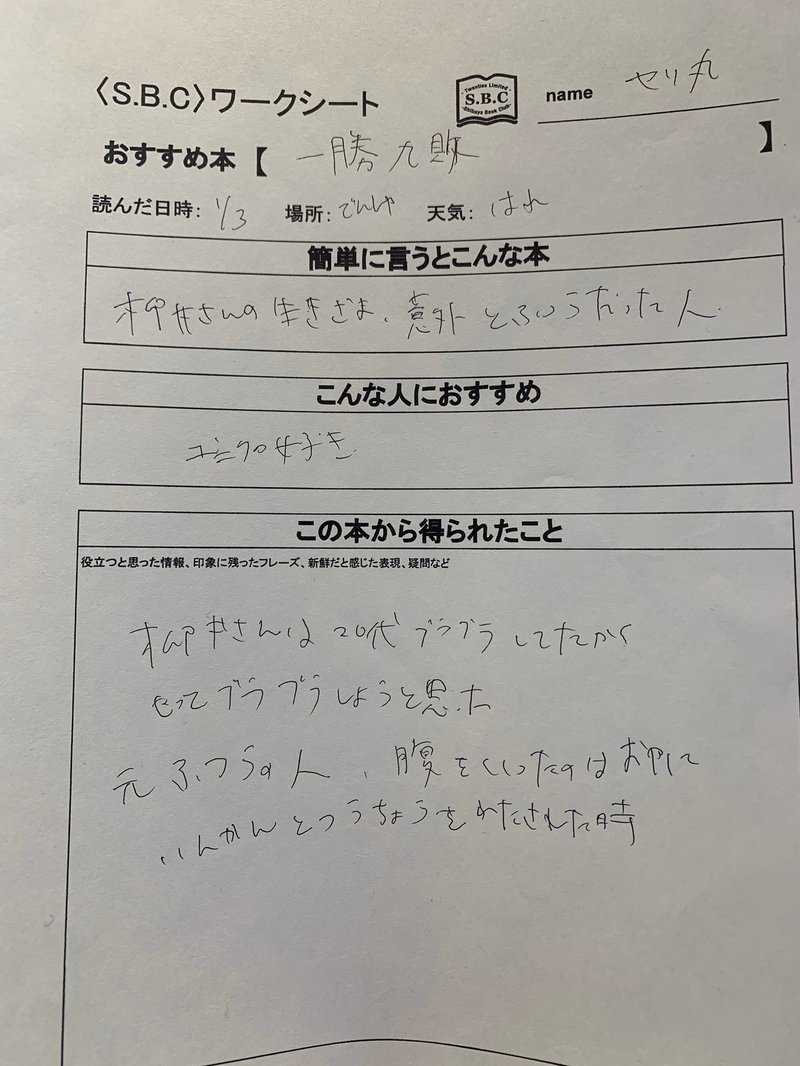 〈S.B.C〉ワークシート
Twenties Limited
S.B.C
Shibuya Book Club
name セリ丸
おすすめ本【 一勝九敗 】
読んだ日時： 1/3 場所： でんしゃ 天気： はれ
簡単に言うとこんな本
柳井さんの生きざま、意外とふつうだった人
こんな人におすすめ
ユニクロ好き
この本から得られたこと
役立つと思った情報、印象に残ったフレーズ、新鮮だと感じた表現、疑問など
柳井さんは20代ブラブラしてたから
ブラブラしようと思た
元ふつうの人、腹をくくったのはおやに
いんかんとつうちょうをわたされた時